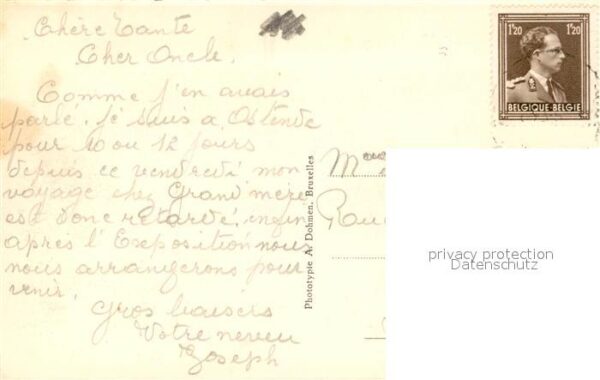 Chère Tante
Cher Oncle.
Comme j'en avais
parlé. je suis a Ostende
pour 10 ou 12 jours
depuis ce vendredi mon
voyage chez Grand'mère
est donc retardé, enfin
après l'Exposition nous
nous arrangerons pour
venir.
Gros baisers
Votre neveu
Joseph
Phototypie A. Dohmen, Bruxelles
1F20 1F20
BELGIQUE-BELGIE
privacy protection
Datenschutz